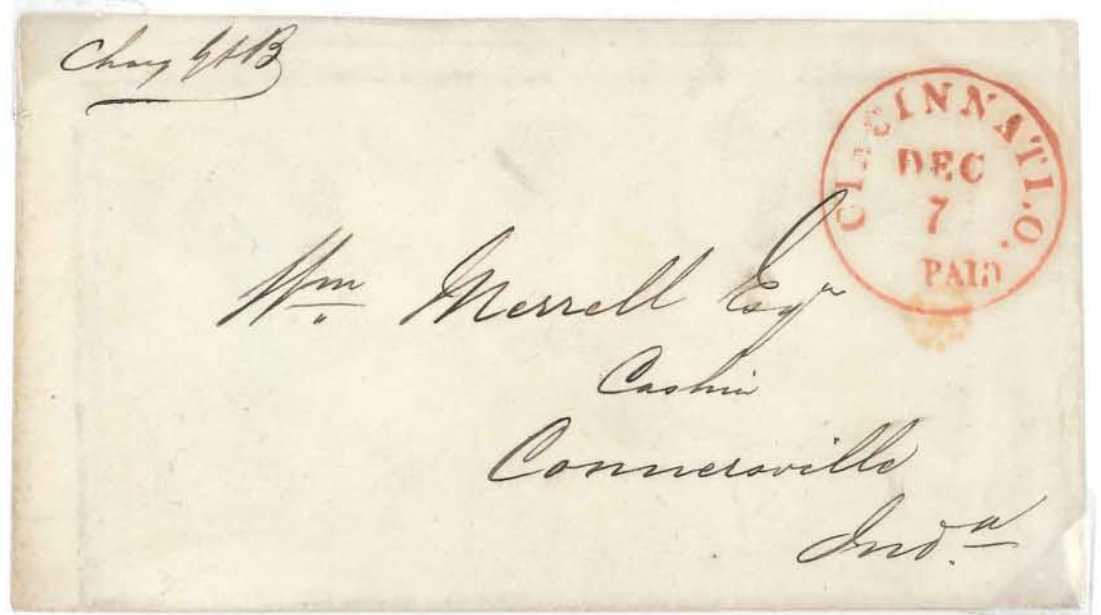 Charg G&B
CINCINNATI.O.
DEC
7
PAID
Wm Merrell Esqr
Cashier
Connersville
Inda